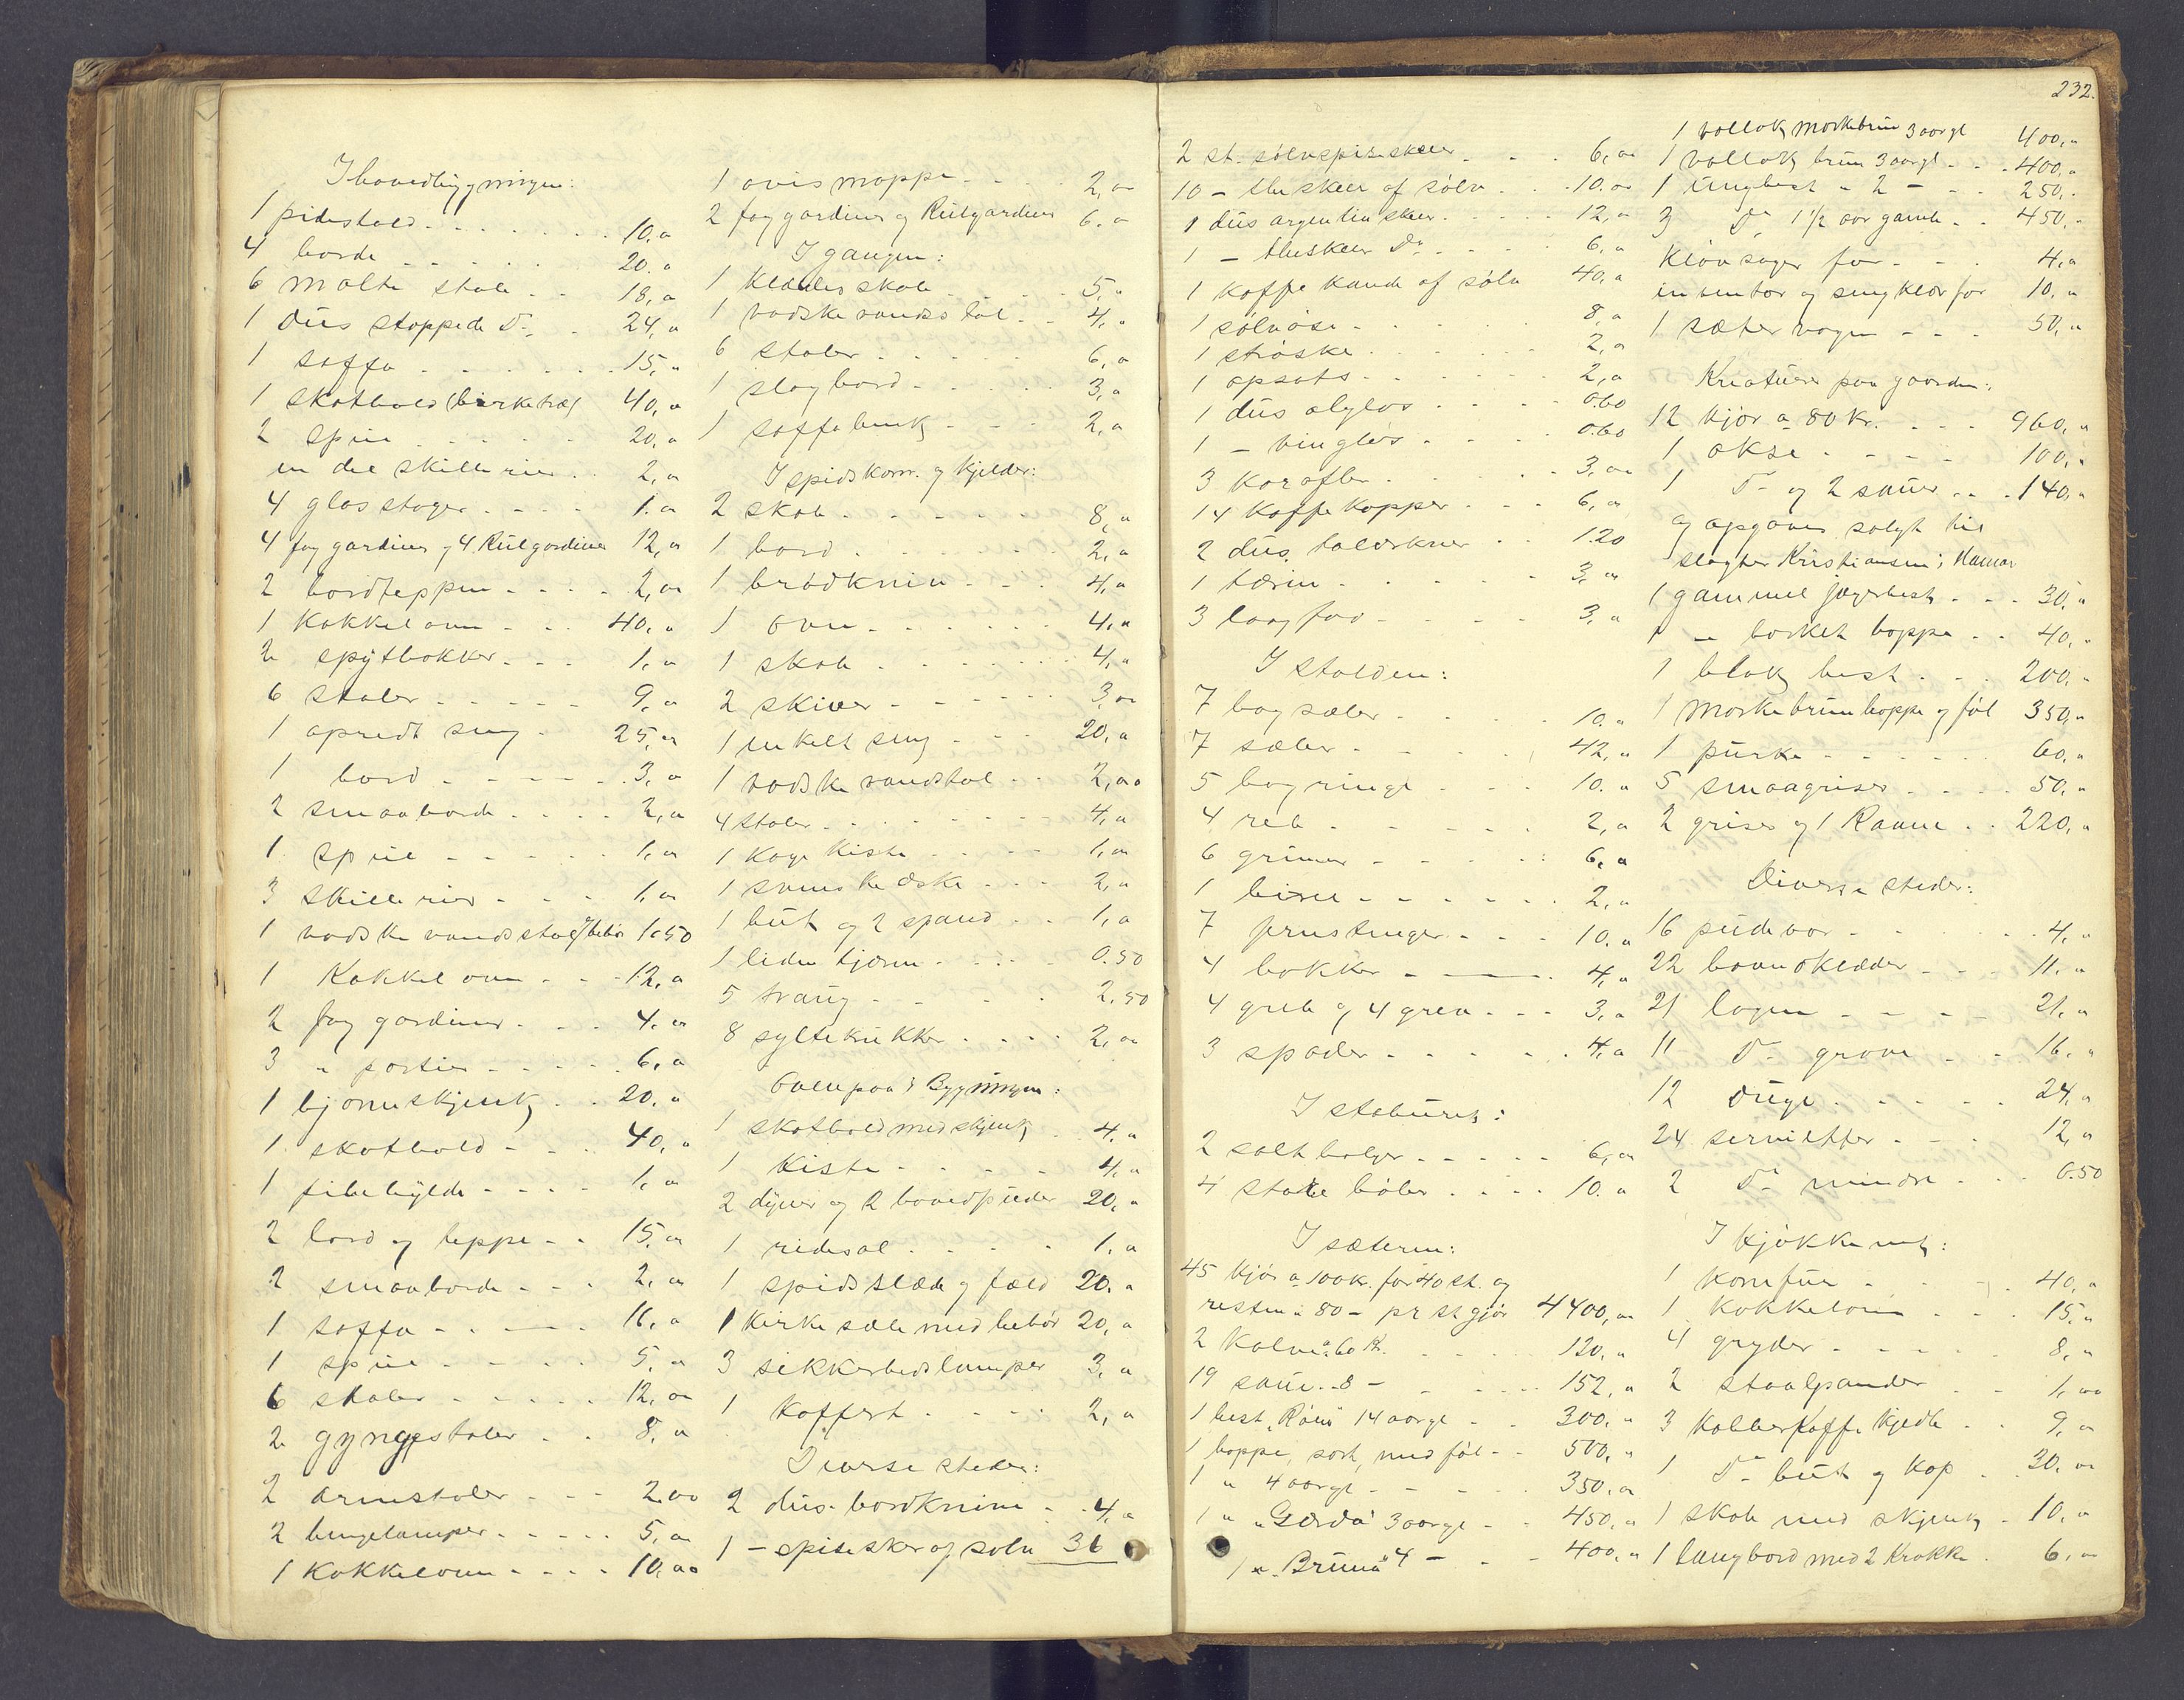 I hovedbygningen:
1 pidestald 10.„
4 borde 20.„
6 malte stole 18,„
1 düs stoppede Do 24,„
1 soffa 15,„
1 skathold (birketræ) 40,„
2 speil 20.„
en del skillerier 2,„
4 glasstager 1.„
4 fag gardiner og 4 Rülgardiner 12,„
2 bordteppen 2,„
1 Kakkelovn 40,„
2 spÿtbakker 1,„
6 stoler 9,„
1 opredt seng 25,„
1 bord 3,„
2 smaaborde 2,„
1 speil 1,„
3 skillerier 1,„
1 vadskevandsstel m/behør 1.50
1 Kakkelovn 12,„
2 fag gardiner 4.„
3 „ portier 6,„
1 hjørneskjenk 20.„
1 skathold 40,„
1 pibehylde 1,„
2 bord og teppe 15,„
2 smaaborde 2,„
1 soffa 16,„
1 speil 5,„
6 stoler 12,„
2 gyngestoler 8,„
2 armstoler 2.00
2 hengelamper 5,„
1 Kakkelovn 10,00
1 avismappe 2,„
2 fag gardiner og Rülgardiner 6.„
I gangen:
1 Klædesskab 5,„
1 vadskevandsstel 4,„
6 stoler 6,„
1 slagbord 3,„
1 soffabenk 2,„
I spidskam. og kjelder:
2 skab 8,„
1 bord 2,„
1 brødkniv 4,„
1 ovn 4,„
1 skab 4,„
2 skiver 3,00
1 enkelt seng 20,„
1 vadskevandstol 2,00
4 stoler 4,„
1 Kogekiste 1,„
1 svenskeæske 2,„
1 büt og 2 spand 1,„
1 liden kjærne 0.50
5 traüg 2,50
8 syltekrükker 2,„
Ovenpaa i Bygningen:
1 skathold med skjenk 4.„
1 Kiste 4,„
2 dÿner og 2 hovedpüder 20,„
1 ridesal 1,„
1 spidsslæde og fæld 20.„
1 Kirkesæle med behør 20,„
3 sikkerhedslamper 3,„
1 Koffert 2,„
Diverse steder:
2 düs. bordknive 4,„
1 – spiseskeer af sølv 36
232.
2 st. sølvspiseskeer 6,„
10 – theskeer af sølv 10.„
1 düs argentinskeer 12,„
1 – theskeer Do 6,„
1 Kaffekande af sølv 40,„
1 sølvøse 8,„
1 strøske 2,„
1 opsats 2,„
1 düs ølglas 0.60
1 – vinglas 0.60
3 Karafler 3,„
14 Kaffekopper 6,„
2 düs. talærkner 1.20
1 tærin 3,„
3 laagfad 3,„
I stalden:
7 bogsæler 10.„
7 sæler 42,„
5 bogringe 10.„
4 reb 2,„
6 grimer 6,„
1 bisse 2,„
7 jernstenger 10.„
4 hakker 4,„
4 greb og 4 grev 3,„
3 spader 4,„
I stabüret:
2 saltbalger 6,„
4 støtte bøler 10.„
I sæteren:
45 kjør a 100 kr. for 40 st. og
resten a 80 – pr st. gjør 4400,„
2 Kalve a 60 Kr. 120,„
19 saüe . 8 – 152,„
1 hest „Røüd“ 14 aarge 300.„
1 hoppe, sort, med føl 500,„
1 „ 4 aarge 350,„
1 „ „Gerda“ 3 aarge 450,„
1 „ „Brüna“ 4 – 400,„
1 vallak mørkebrün 3 aargl 400,„
1 vallak brün 3 aargl. 400,„
1 ünghest „ 2 – 250,„
3 Do 1 1/2 aar gamle 450.„
Kløvsager for 4,„
inventar og sengklær for 10,„
1 sætervogn 50,„
Kreatürer paa gaarden:
12 kjør a 80 kr. 960,„
1 okse 100,„
1 Do og 2 saüer 140,„
og opgaves solgt til
slagter Kristiansen i Hamar
1 gammel jægerhest 30,„
1 – borket hoppe 40,„
1 blak hest 200,„
1 mørkebrün hoppe og føl 350,„
1 pürke 60,„
5 smaagriser 50,„
2 griser og 1 Raane 220,„
Diverse steder:
16 püdevar 4,„
22 haandklæder 11.„
21 lagen 21,„
11 Do grove 16.„
12 düge 24,„
24 servietter 12,„
2 Do mindre 0.50
I kjøkkenet:
1 komfür 40,„
1 kakkelovn 15,„
4 gryder 8,„
2 staalpander 1,00
3 Kobberkaffekjedle 9,„
1 Do büt og Kop 30,„
1 skab med skjenk 10,„
1 langbord med 2 Krakke 6,„